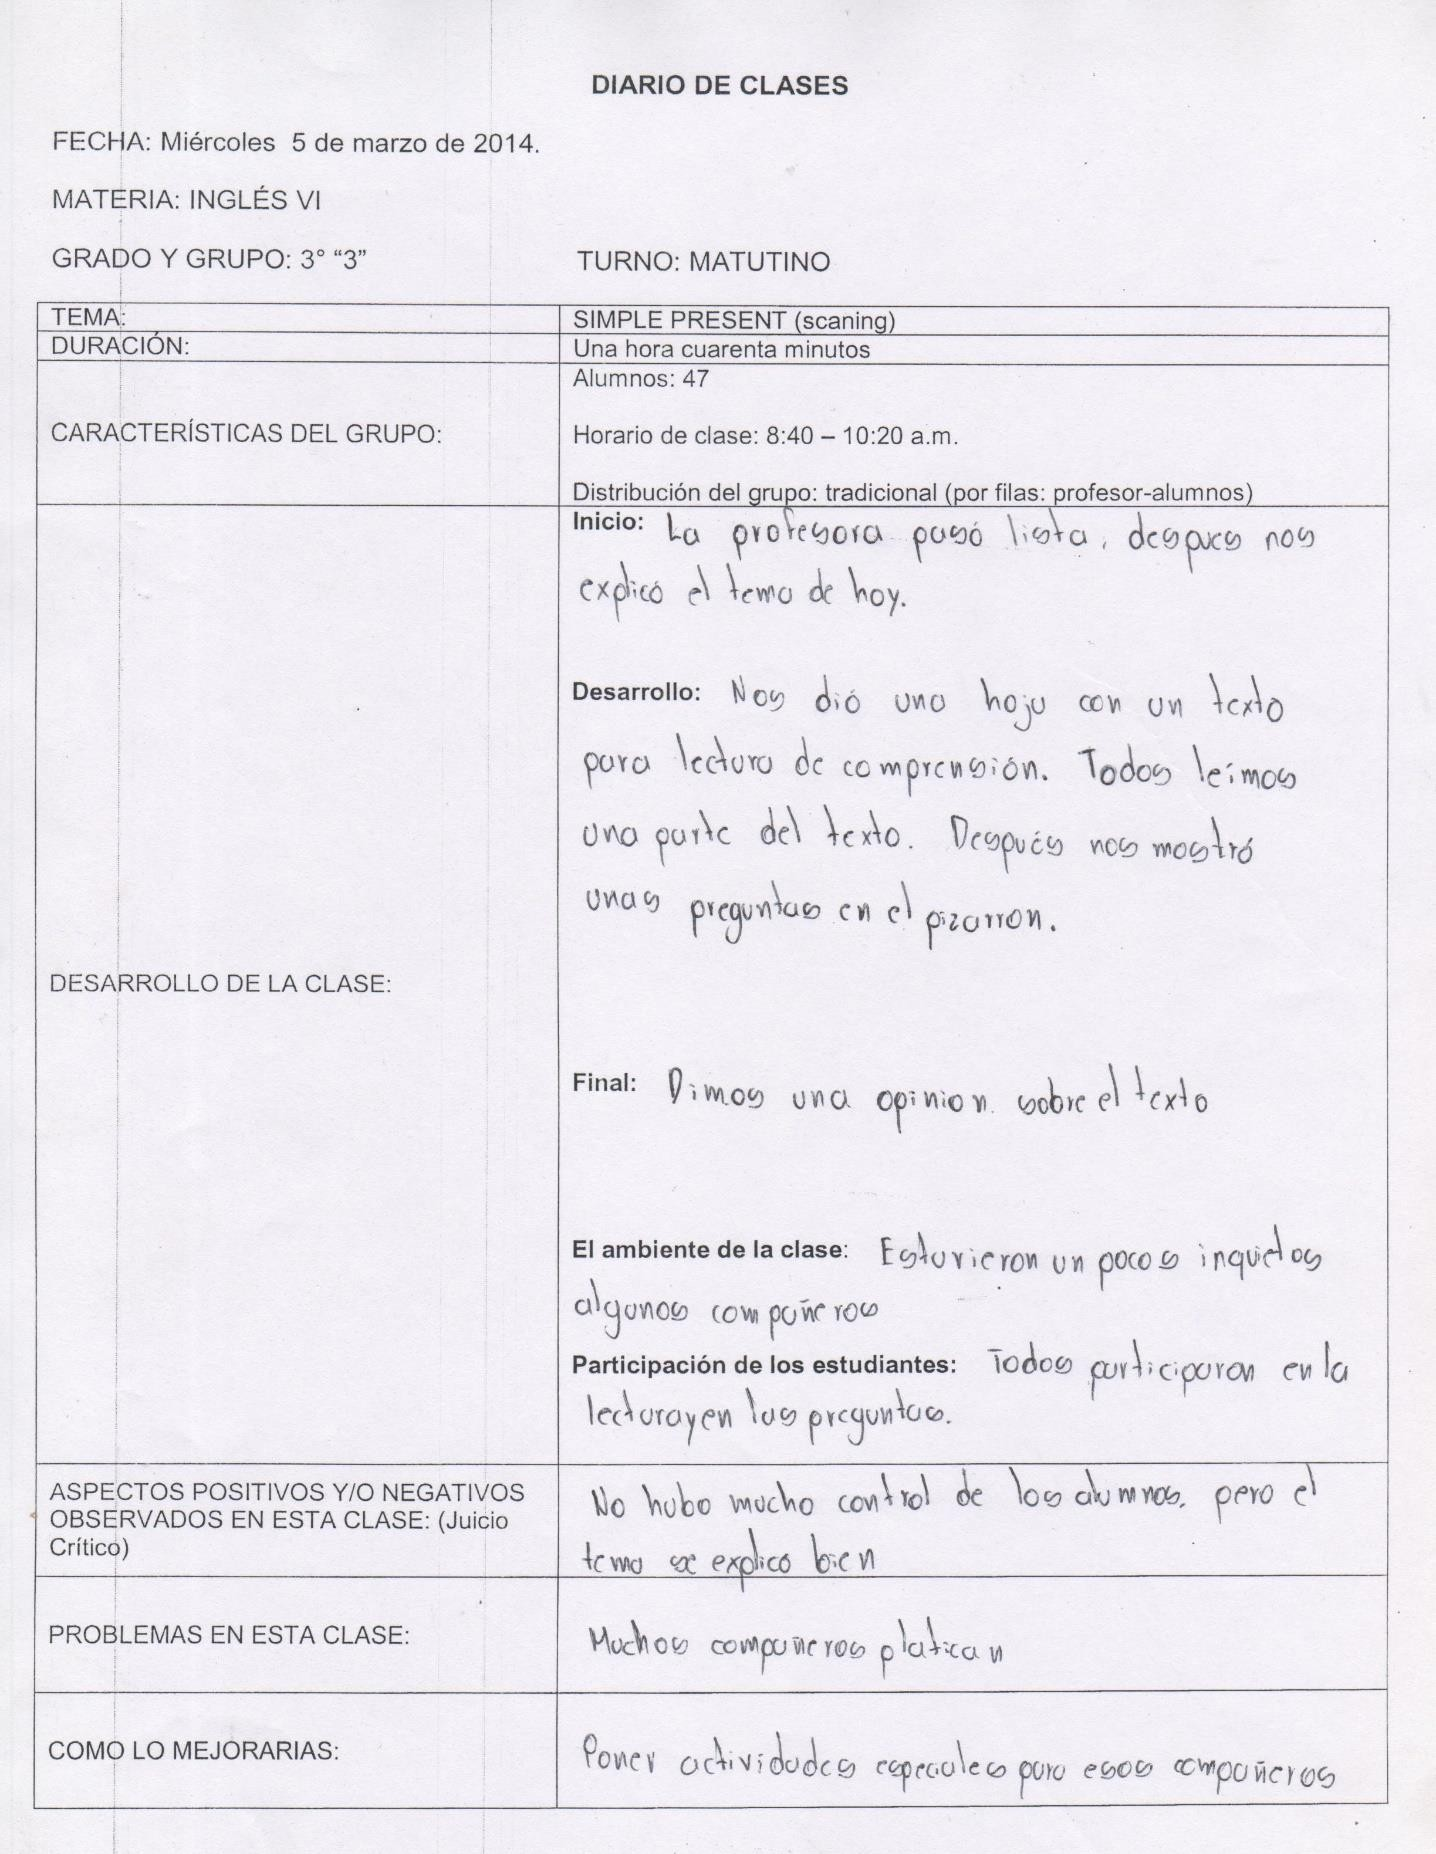 DIARIO DE CLASES
FECHA: Miércoles  5 de marzo de 2014.
MATERIA: INGLÉS VI
GRADO Y GRUPO: 3° “3”
TURNO: MATUTINO
TEMA:
SIMPLE PRESENT (scaning)
DURACIÓN:
Una hora cuarenta minutos
CARACTERÍSTICAS DEL GRUPO:
Alumnos: 47
Horario de clase: 8:40 – 10:20 a.m.
Distribución del grupo: tradicional (por filas: profesor-alumnos)
DESARROLLO DE LA CLASE:
Inicio: La profesora pasó lista, despues nos
explicó el tema de hoy.
Desarrollo: Nos dió una hoja con un texto
para lectura de comprensión. Todos leímos
una parte del texto. Después nos mostró
unas preguntas en el pizarron.
Final: Dimos una opinion sobre el texto
El ambiente de la clase: Estuvieron un pocos inquietos
algunos compañeros
Participación de los estudiantes: Todos participaron en la
lectura y en las preguntas.
ASPECTOS POSITIVOS Y/O NEGATIVOS
OBSERVADOS EN ESTA CLASE: (Juicio
Crítico)
No hubo mucho control de los alumnos, pero el
tema se explicó bien
PROBLEMAS EN ESTA CLASE:
Muchos compañeros platican
COMO LO MEJORARIAS:
Poner actividades especiales para esos compañeros